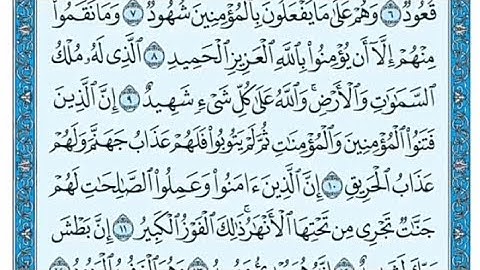 قُعُودٌ ٦ وَهُمْ عَلَىٰ مَا يَفْعَلُونَ بِالْمُؤْمِنِينَ شُهُودٌ ٧ وَمَا نَقَمُوا
مِنْهُمْ إِلَّا أَن يُؤْمِنُوا بِاللَّهِ الْعَزِيزِ الْحَمِيدِ ٨ الَّذِي لَهُ مُلْكُ
السَّمَاوَاتِ وَالْأَرْضِ ۚ وَاللَّهُ عَلَىٰ كُلِّ شَيْءٍ شَهِيدٌ ٩ إِنَّ الَّذِينَ
فَتَنُوا الْمُؤْمِنِينَ وَالْمُؤْمِنَاتِ ثُمَّ لَمْ يَتُوبُوا فَلَهُمْ عَذَابُ جَهَنَّمَ وَلَهُمْ
عَذَابُ الْحَرِيقِ ١٠ إِنَّ الَّذِينَ ءَامَنُوا وَعَمِلُوا الصَّالِحَاتِ لَهُمْ
جَنَّاتٌ تَجْرِي مِن تَحْتِهَا الْأَنْهَارُ ۚ ذَٰلِكَ الْفَوْزُ الْكَبِيرُ ١١ إِنَّ بَطْشَ